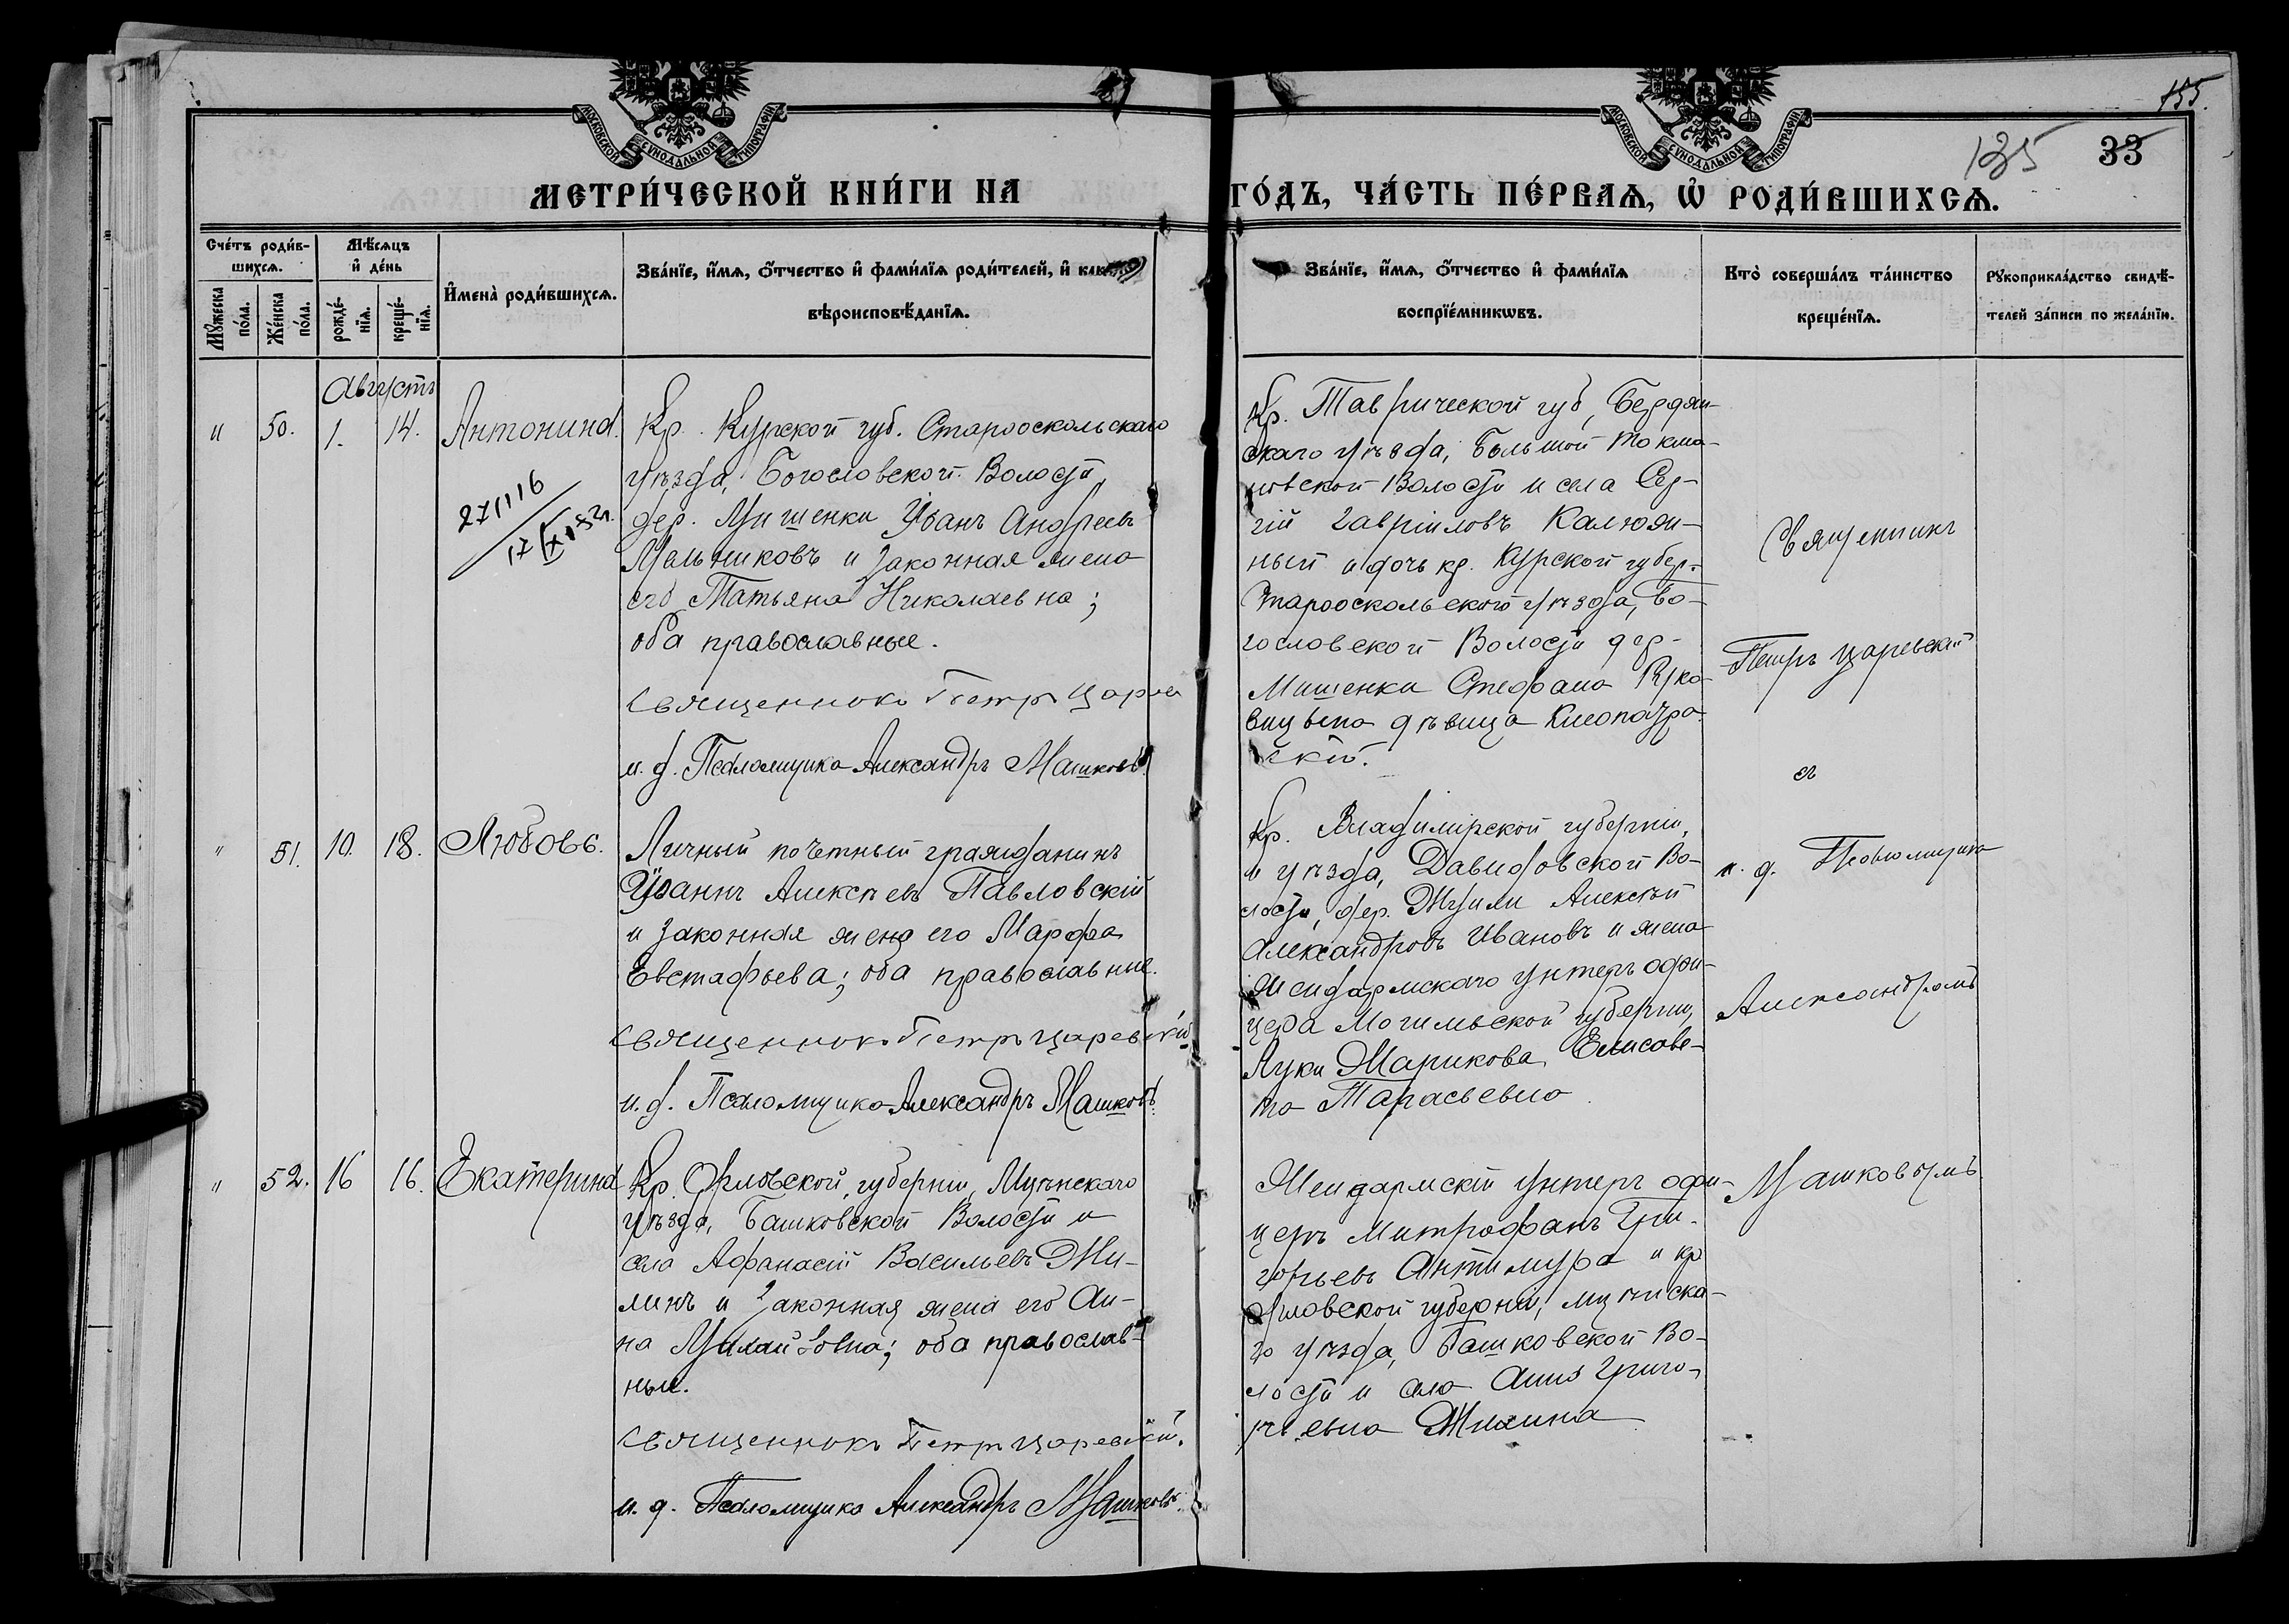 155.
135 33
МОСКОВСКОЙ СѴНОДАЛЬНОЙ ТИПОГРАФІИ
МОСКОВСКОЙ СѴНОДАЛЬНОЙ ТИПОГРАФІИ
МЕТРИ́ЧЕСКОЙ КНИ́ГИ НА ГО́ДЪ, ЧА́СТЬ ПЕ́РВАѦ, Ѡ РОДИ́ВШИХСѦ.
Сче́тъ роди́в-
шихсѧ.
Мꙋ́жеска
по́ла.
Же́нска
по́ла.
Мѣ́сѧцъ
и҆ де́нь
рожде́-
нїѧ.
креще́-
нїѧ.
И҆мена̀ роди́вшихсѧ.
Зва́нїе, и҆́мѧ, ѻ҆́тчество и҆ фами́лїѧ роди́телей, и҆
вѣроисповѣ́данїѧ.
Зва́нїе, и҆́мѧ, ѻ҆́тчество и҆ фами́лїѧ
воспрїе́мникѡвъ.
Кто̀ соверша́лъ та́инство
креще́нїѧ.
Рꙋкоприкла́дство свидѣ́-
телей за́писи по жела́нїю.
Августъ
и 50. 1. 14. Антонина.
271116
17/IX 52г.
Кр. Курской губ. Старооскольскаго
уѣзда, Богословской Волости,
дер. Мишенки Іоаннъ Андреевъ
Мальниковъ и законная жена
его Татьяна Николаевна;
оба православные.
Священникъ Петръ Царев
и. д. Псаломщика Александръ Машковъ.
Кр. Таврической губ, Бердян-
скаго уѣзда, Большой Токма-
новской Волости и села Сер-
гій Гавріиловъ Калюж-
ный и дочь кр. Курской губер.
Старооскольскаго уѣзда, Бо-
гословской Волости дер-
Мишенки Стефана
дѣвица Клеопатра.
скій.
Священникъ
Петръ Царевскій
съ
и. д. Псаломщика
Александромъ
Машковымъ
" 51. 10. 18. Любовь.
Личный почетный гражданинъ
Іоаннъ Алексѣевъ Павловскій
и законная жена его Марфа
Евстафьева; оба православные.
Священникъ Петръ Царевскій
и. д. Псаломщика Александръ Машковъ.
Кр. Владимірской губерніи,
и уѣзда, Давидовской Во-
лости, дер. Алексѣй
Александровъ Ивановъ и жена
жандармскаго унтеръ офи-
цера Могилевской губерніи,
Луки Марикова, Елисаве-
та Тарасьевна.
" 52. 16 16. Екатерина
Кр. Орловской, губерніи, Мценскаго
уѣзда, Башковской Волости и
села Афанасій Васильевъ Жи-
линъ и законная жена его Ан-
на Михайловна; оба православ-
ные.
Священникъ Петръ Царевскій.
и. д. Псаломщика Александръ Машковъ.
Жандармскій унтеръ офи-
церъ Митрофанъ Гри-
горьевъ Антимура и кр
Орловской губерніи, Мценска-
го уѣзда, Башковской Во-
лости и села Анна Григо-
рьевна Жилина